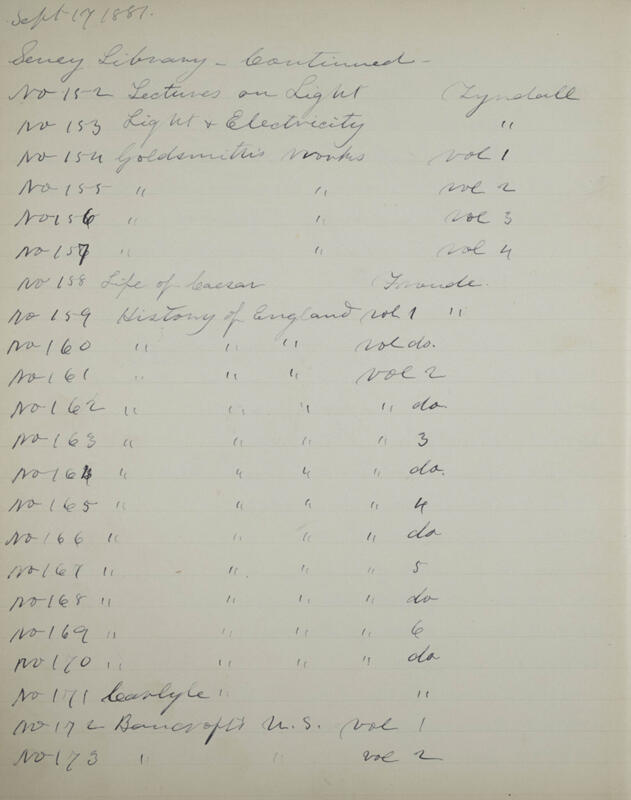 Sept 17 1881.
Seney Library - Continued -
No 152 Lectures on Light Tyndall
No 153 Light & Electricity "
No 154 Goldsmith's Works vol 1
No 155 " " vol 2
No 156 " " vol 3
No 157 " " vol 4
No 158 Life of Caesar Froude.
No 159 History of England vol 1 "
No 160 " " " vol do.
No 161 " " " vol 2
No 162 " " " " do
No 163 " " " " 3
No 164 " " " " do.
No 165 " " " " 4
No 166 " " " " do
No 167 " " " " 5
No 168 " " " " do
No 169 " " " " 6
No 170 " " " " do
No 171 Carlyle " "
No 172 Bancroft's U.S. vol 1
No 173 " " vol 2